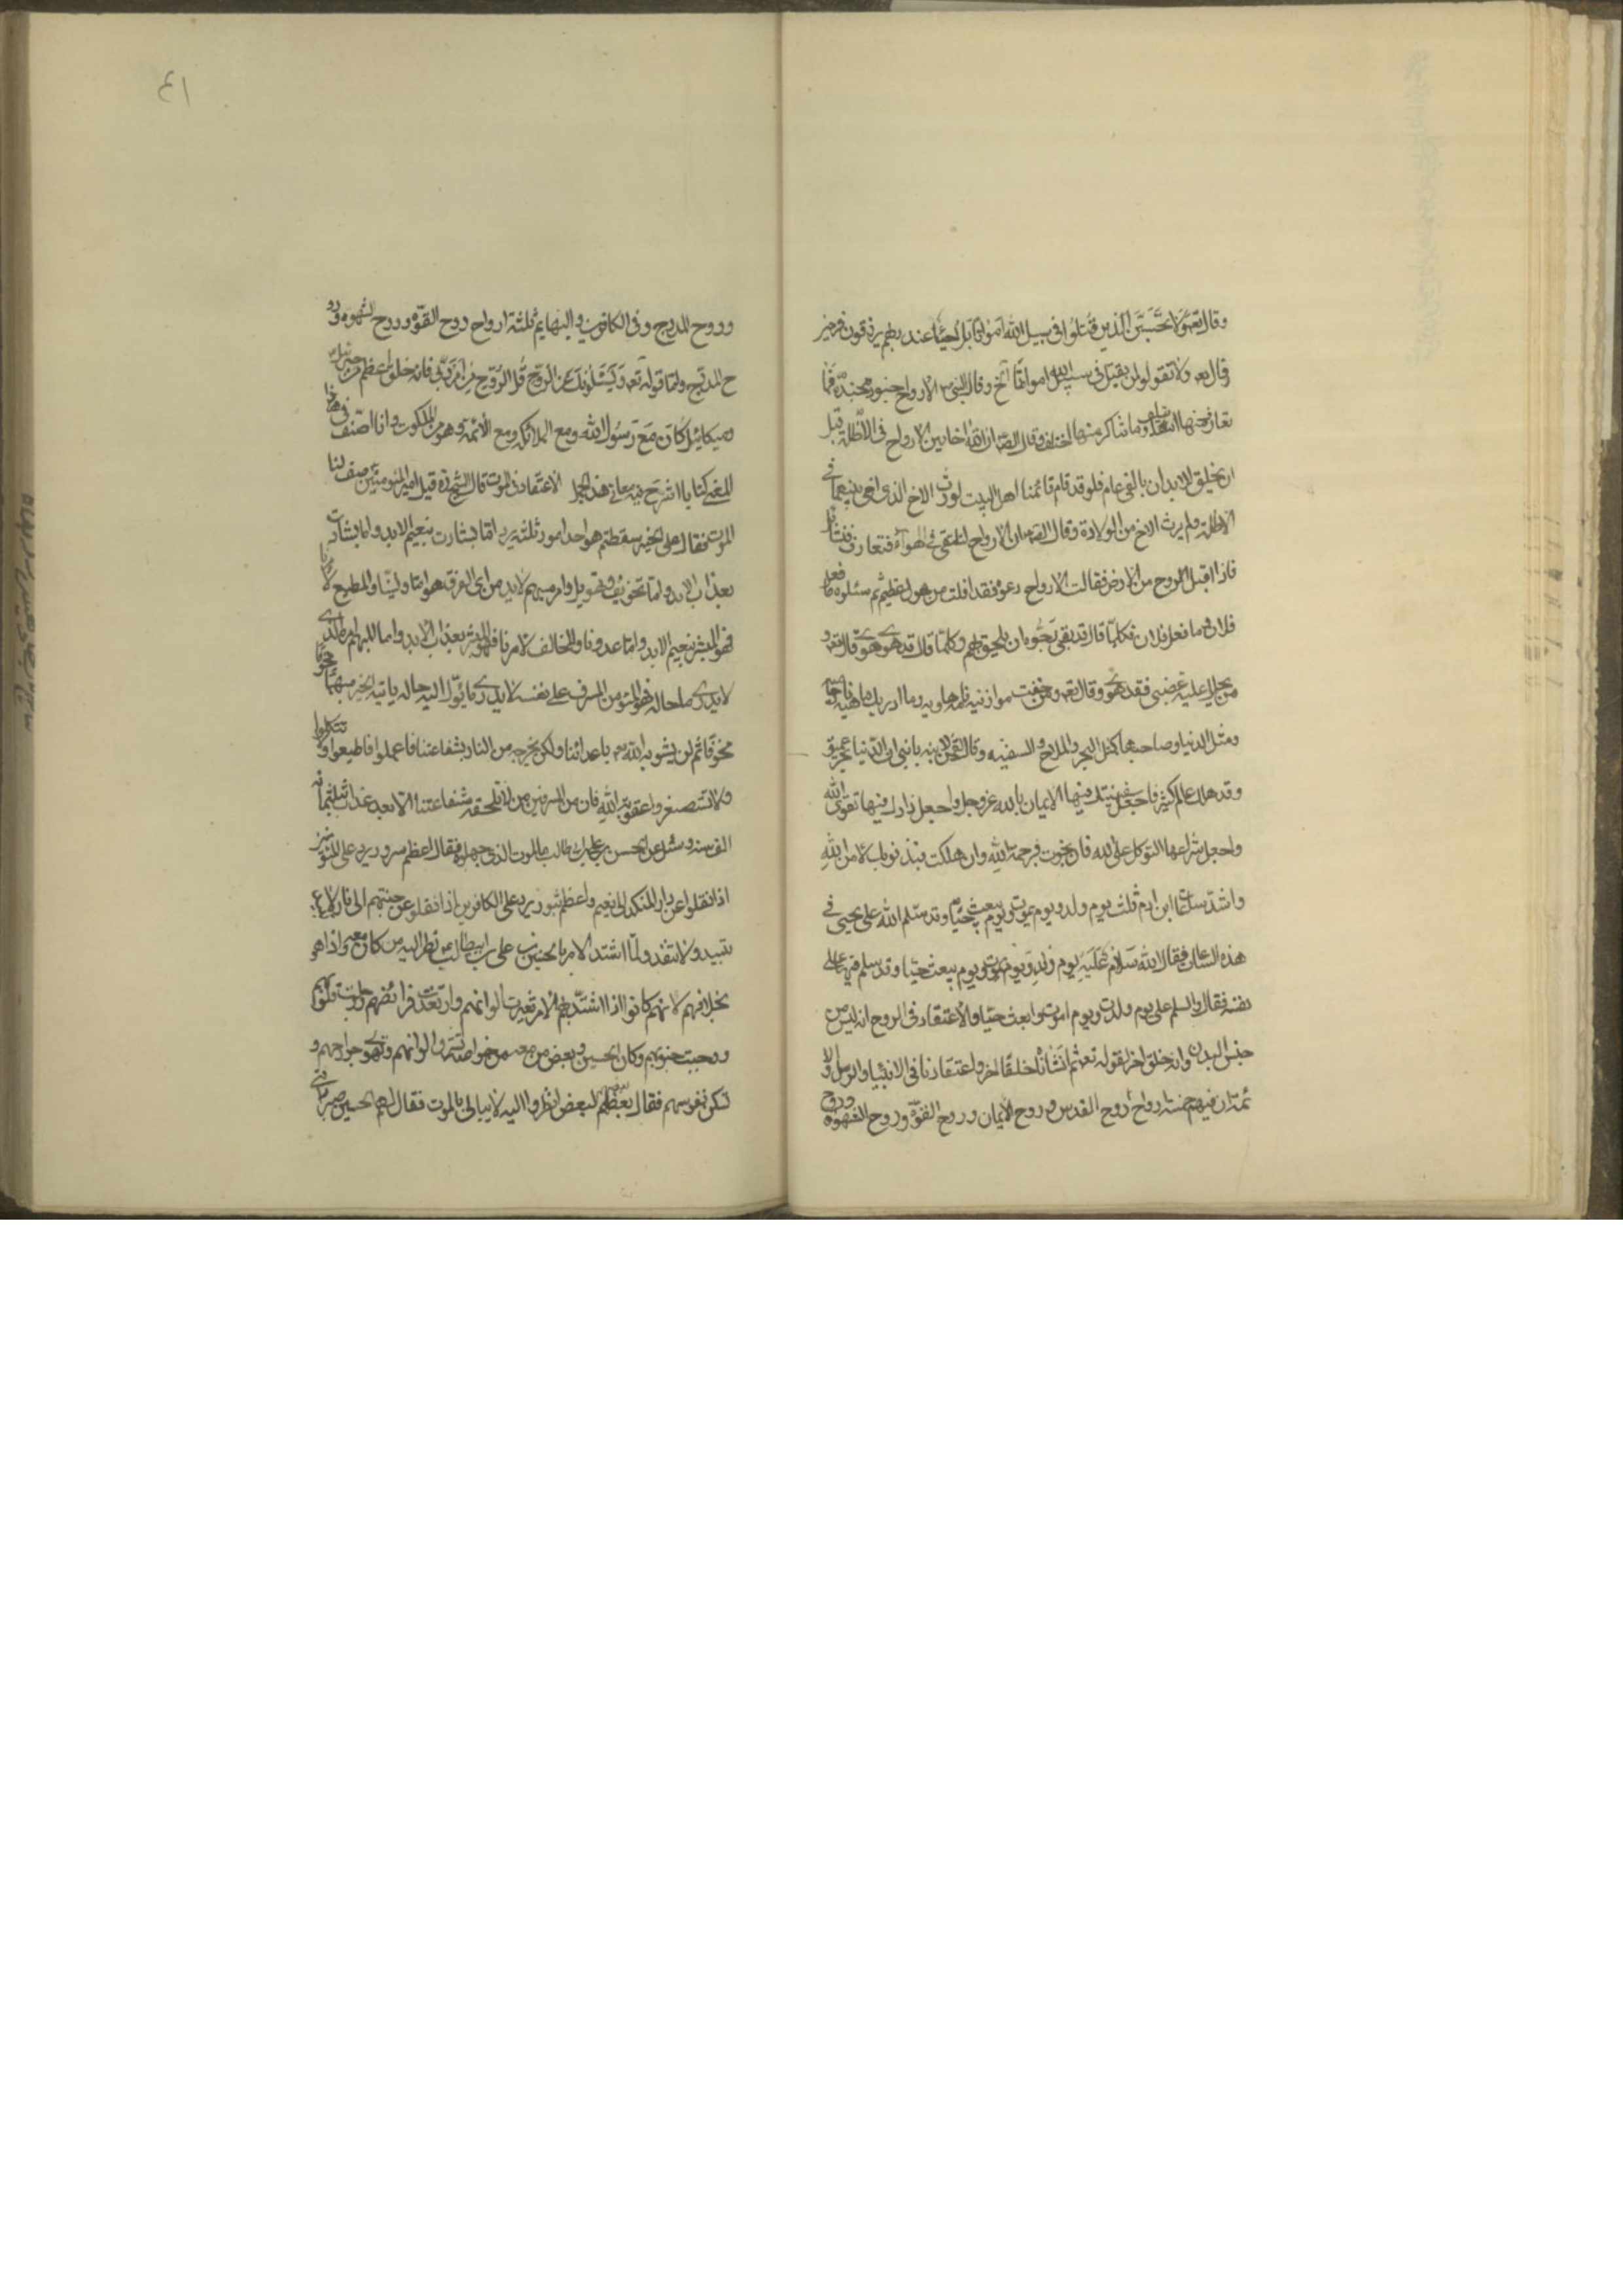 وقال تعم ولا تحسبن الذين قتلوا فى سبيل الله امواتا بل احياء عند ربهم يرزقون فرحين
وقال تعم ولا تقولوا لمن يقتل فى سبيل الله امواتا الخ وقال النبى ص الارواح جنود مجندة فما
تعارف منها ائتلف وما تناكر منها اختلف وقال الصادق ان الله اخا بين الارواح فى الاظلة قبل
ان يخلق الابدان بالفى عام فلو قد قام قائمنا اهل البيت لورث الاخ الذى اخى بينهما فى
الاظلة ولم يرث الاخ من الولادة وقال الصم ان الارواح لتلتقى فى الهواء فتعارف فتسائل
فاذا اقبل الروح من الارض فقالت الارواح دعوه فقد افلت من هول عظيم ثم سئلوه ما فعل
فلان وما فعل فلان فكلما قال قد بقى رجوه ان يلحق بهم وكلما قال قد مات قالوا هوى هوى قال تعم و
من يحلل عليه غضبى فقد هوى وقال تعم ومن خفت موازينه فامه هاوية وما ادريك ماهيه نار حامية
ومثل الدنيا وصاحبها كمثل البحر والملاح والسفينه وقال لقمن لابنه يا بنى ان الدنيا بحر عميق
وقد هلك عالم كثير فاجعل سفينتك فيها الايمان بالله عز وجل واجعل زادك فيها تقوى الله
واجعل شراعها التوكل على الله فان نجوت فبرحمة الله وان هلكت فبذنوبك لا من الله
واشد ساعات ابن ادم ثلث يوم ولد ويوم يموت ويوم يبعث حيا وقد سلم الله على يحيى فى
هذه الساعات فقال الله سلام عليه يوم ولد ويوم يموت ويوم يبعث حيا وقد سلم فيها عيسى على
نفسه فقال والسلم على يوم ولدت ويوم اموت وابعث حيا والاعتقاد فى الروح انه ليس من
جنس البدن وانه خلق اخر لقوله تعم ثم انشاناه خلقا اخر واعتقادنا فى الانبيا والرسل والا
ئمة ان فيهم خمسة ارواح روح القدس وروح الايمان وروح القوة وروح الشهوة وروح
٤١
وروح المدرج وفى الكافرين والبهايم ثلثة ارواح روح القوة وروح الشهوه ورو
ح المدرج واما قوله تعم ويسئلونك عن الروح قل الروح من امر ربى فانه خلق اعظم من جبرئيل
وميكائيل كان مع رسول الله ومع الملائكة ومع الائمة وهو من الملكوت وانا اصنف فى هذا
المعنى كتابا اشرح فيه معانى هذه الجمل الاعتقاد فى الموت قال الشيخ ره قيل لامير المومنين صف لنا
الموت فقال على الخبير سقطتم هو احد امور ثلثة يرد اما بشارت بنعيم الابد واما بشارت
بعذاب الابد واما تخويف وتهويل وامر مبهم لايدرى من اى الفرق هو اما ولينا والمطيع لامرنا
فهو المبشر بنعيم الابد واما عدونا والمخالف لامرنا فهو المبشر بعذاب الابد واما المبهم امره الذى
لايدرى ما حاله فهو المؤمن المسرف على نفسه لايدرى ما يؤل اليه حاله ياتيه الخبر مبهما
مخوفا ثم لن يسويه الله تعم باعدائنا ولكن يخرجه من النار بشفاعتنا فاعملوا واطيعوا ولا تتكلوا
ولا تستصغروا عقوبة الله فان من المسرفين من لا تلحقه شفاعتنا الا بعد عذاب ثلثمائه
الف سنه وسئل عن الحسن بن على بن ابيطالب ما الموت الذى جهلوه فقال اعظم سرور يرد على المؤمنين
اذا نقلوا عن دار النكد الى نعيم الابد واعظم ثبور يرد على الكافرين اذا نقلوا عن جنتهم الى نار لا
تبيد ولا تنفد ولما اشتد الامر بالحسين بن على بن ابيطالب نظر اليه من كان معه واذا هو
بخلافهم لانهم كانوا اذا اشتد بهم الامر تغيرت الوانهم وارتعدت فرائصهم ووجلت قلوبهم
ووجبت جنوبهم وكان الحسين وبعض من معه من خواصه تشرق الوانهم وتهدى جوارحهم و
تسكن نفوسهم فقال بعضهم لبعض انظروا اليه لا يبالى بالموت فقال لهم الحسين صبرا بنى